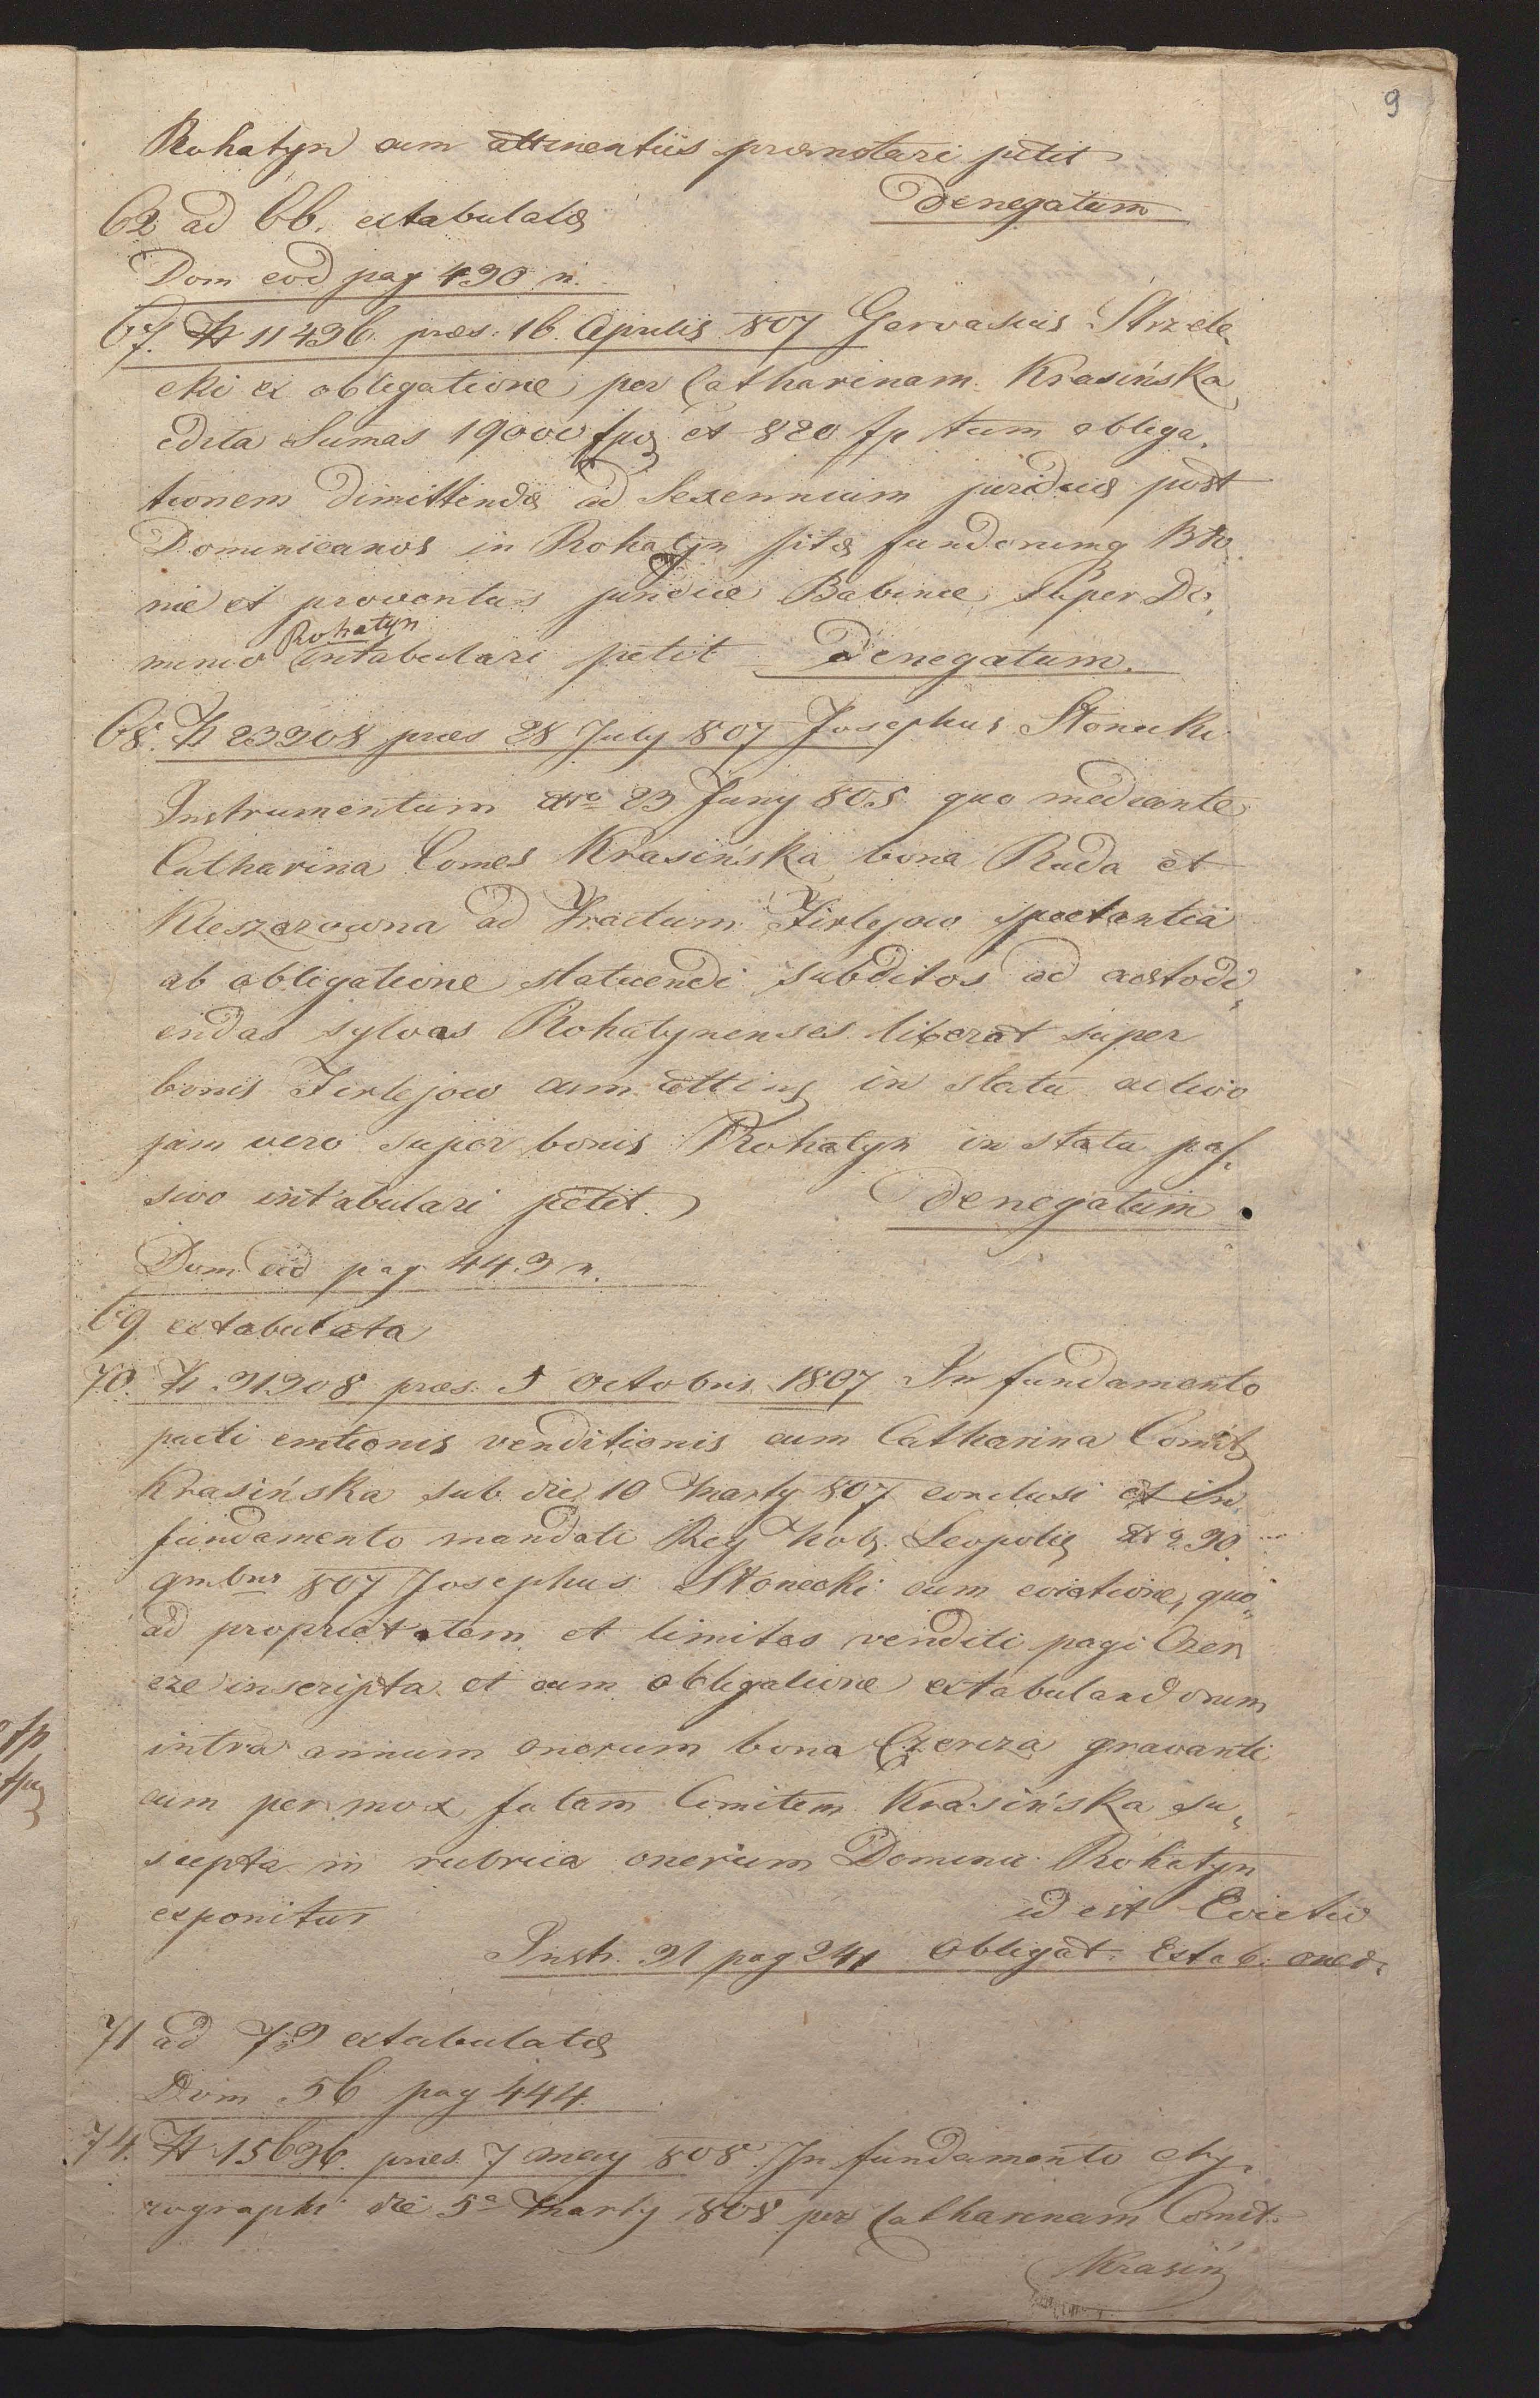 9
Rohatyn cum attinentiis praenotari petit
Denegatum
62 ad 66. extabulatae
Dom eod pag 430 n.
67. H 11436. praes. 16. Aprilis 807 Gervasius Strzele,
cki ex obligatione per Catharinam Krasińska
edita Sumas 19000 fpol et 820 fp tum obliga,
tionem dimittendae ad Sexennium juridicae post
Dominicanos in Rohatyn sitae fundorumq Bło
nie et proventus juridicae Babince super Do,
Rohatyn
minio intabulari petit Denegatum.
68. H 23208 praes 28 July 807 Josephus Słonecki
Instrumentum ddto 23 Juny 805 quo mediante
Catharina Comes Krasińska bona Ruda et
Kleszczowna ad Tractum Firlejow spectantia
ab obligatione statuendi subditos ad custodi,
endas sylvas Rohatynenses liberat super
bonis Firlejow cum attins in statu activo
jam vero super bonis Rohatyn in statu pas,
sivo intabulari petit. Denegatum.
Dom eod pag 443 n.
69 extabulata
70. H 31308 praes. 5 Octobris 1807 In fundamento
pacti emtionis venditionis cum Catharina Comit
Krasińska sub die 10 Marty 807 conclusi et in
fundamento mandati Reg Nob. Leopolis dd 2 30
qmbris 807 Josephus Słonecki cum evictione, quo,
ad proprietatem et limites venditi pagi Czer
cze inscripta et cum obligatione extabulandorum
intra annum onerum bona Czercza gravanti
cum per mox fatam Comitem Krasińska su,
scepta in rubrica onerum Dominii Rohatyn
exponitur id est Evictio
Instr. 31 pag 241 Obligat. Extab. oner.
71 ad 73 extabulatae
Dom 56 pag 444.
74. H 15636. praes. 7 May 808. In fundamento chy,
rographi die 5a Marty 808 per Catharinam Comit.
Krasiń